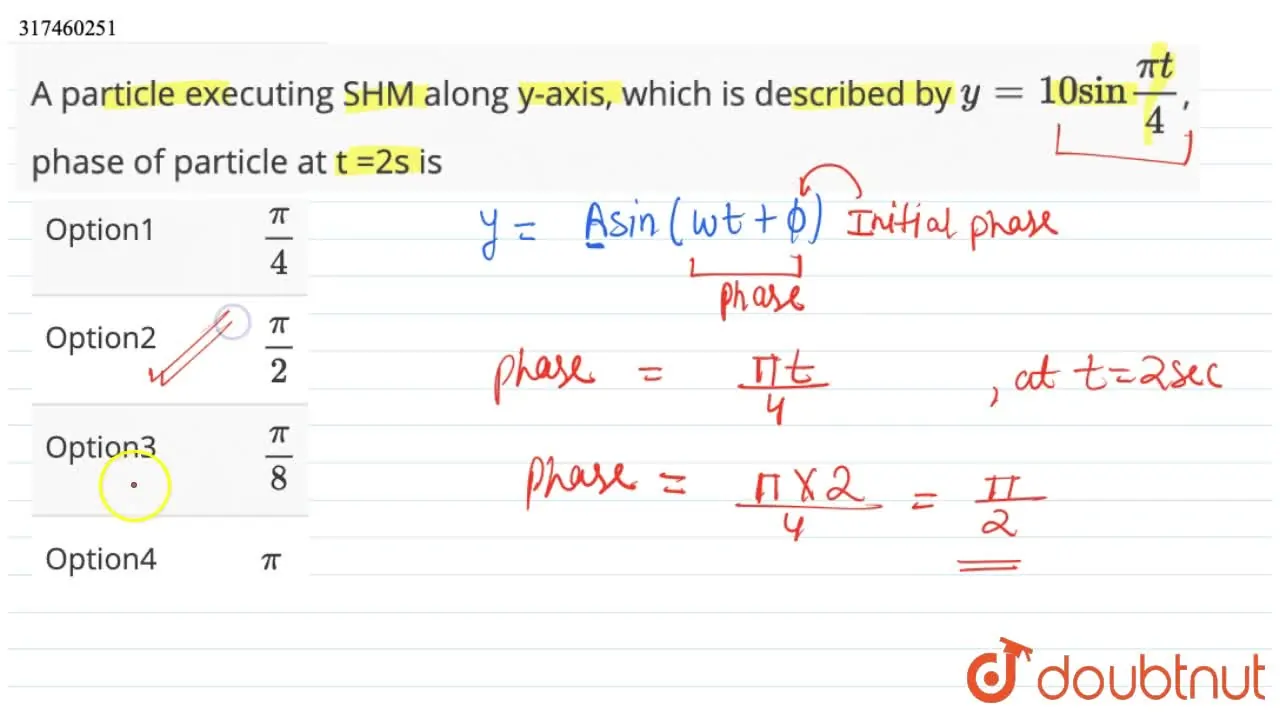 317460251
A particle executing SHM along y-axis, which is described by y = 10sin πt/4,
phase of particle at t =2s is
Option1 π/4
Option2 π/2
Option3 π/8
Option4 π
y = Asin (ωt + ϕ) Initial phase
phase
phase = πt/4 , at t=2sec
phase = π×2/4 = π/2
doubtnut